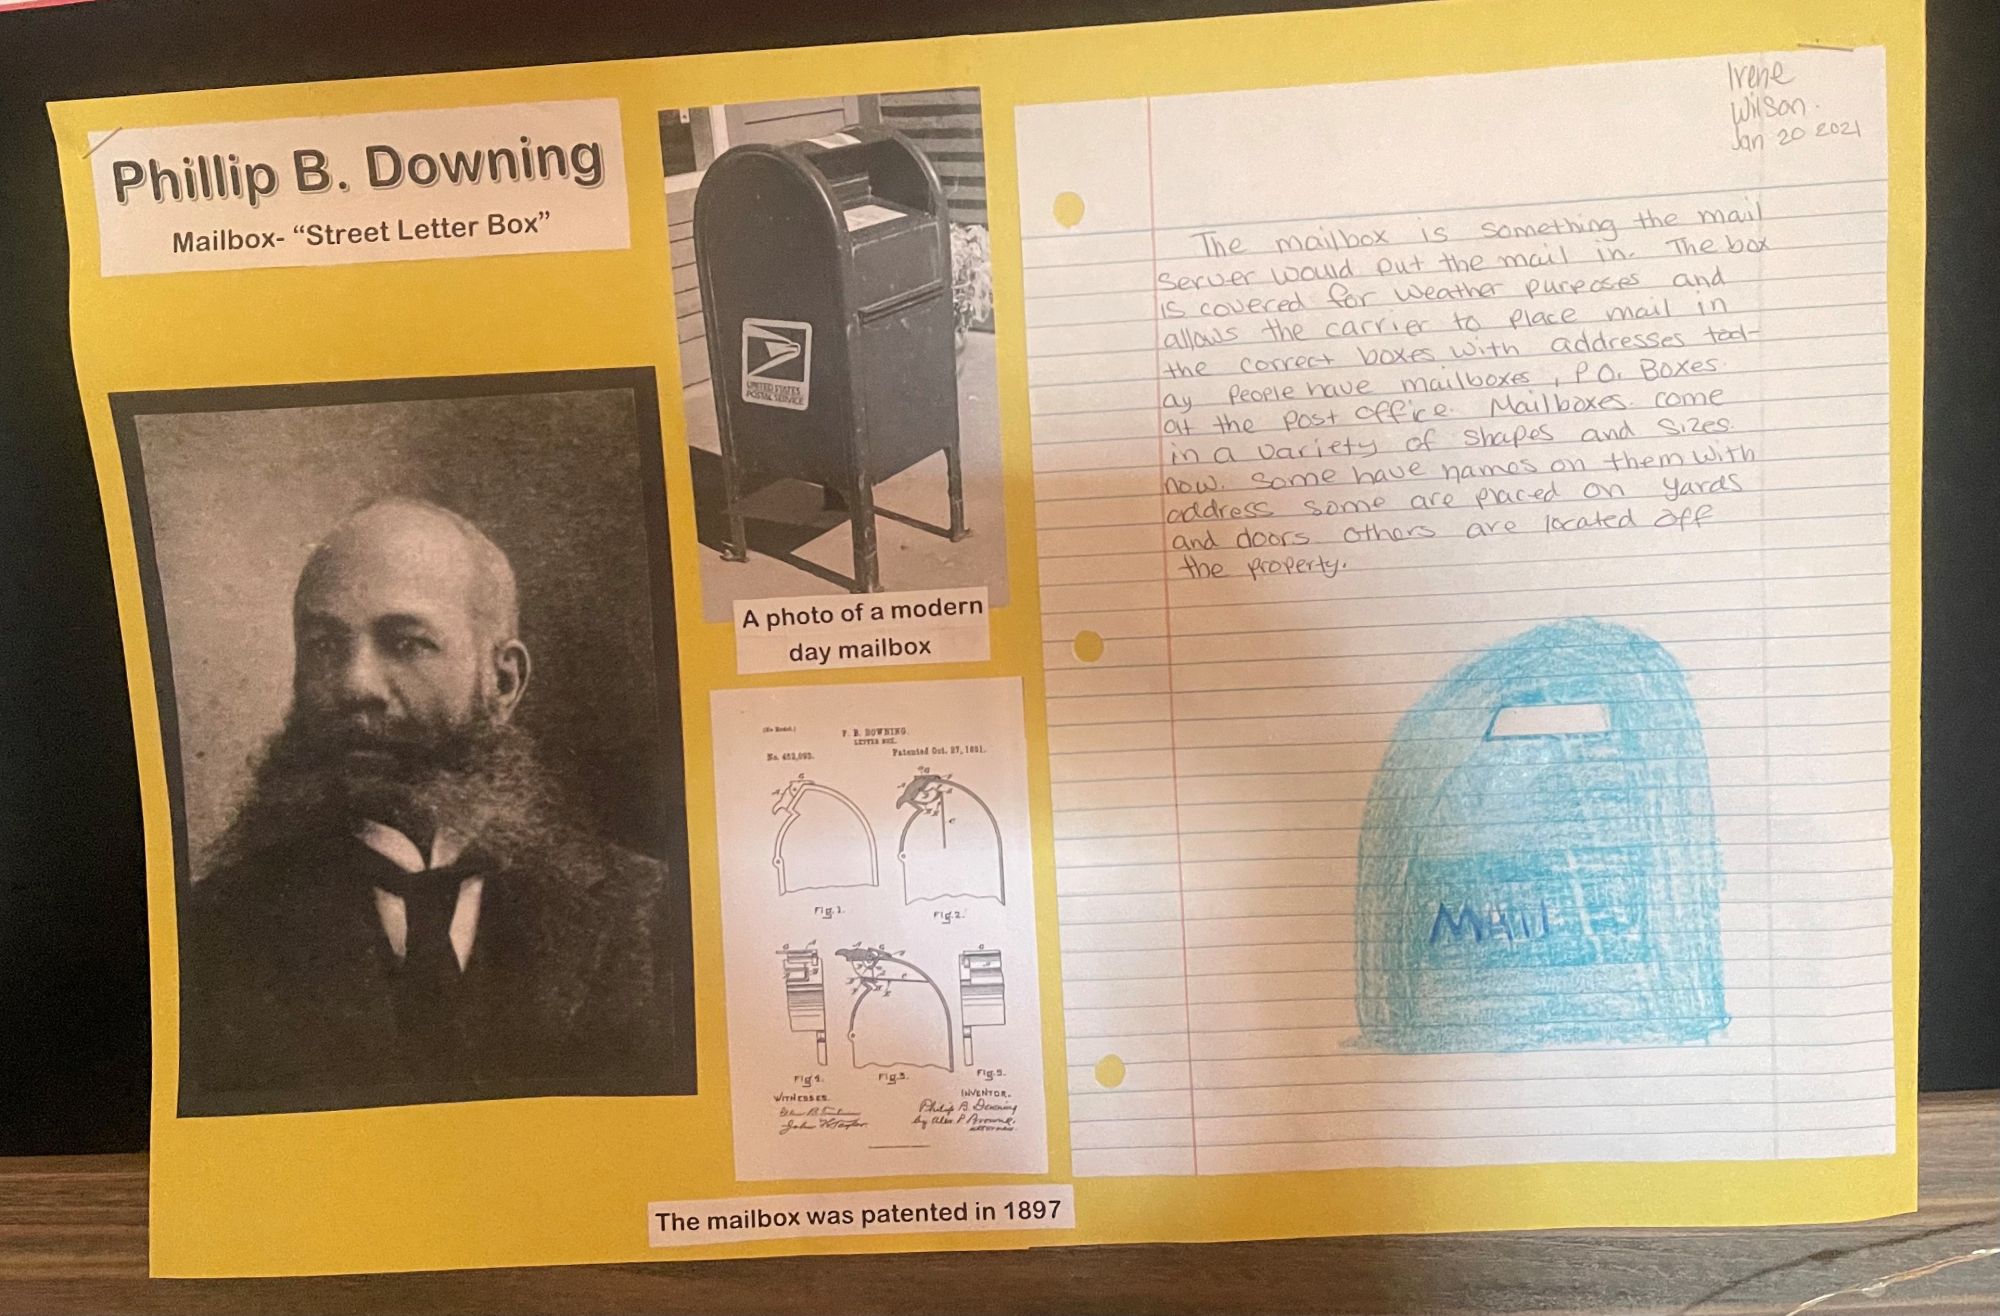 Phillip B. Downing
Mailbox- “Street Letter Box”
UNITED STATES
POSTAL SERVICE
A photo of a modern
day mailbox
(No Model.)
P. B. DOWNING.
LETTER BOX.
No. 462,093.
Patented Oct. 27, 1891.
Fig.1.
Fig.2.
Fig.4.
Fig.3.
Fig.5.
WITNESSES.
INVENTOR.
Philip B. Downing
by Alex P. Browne,
ATTORNEY.
The mailbox was patented in 1897
Irene
Wilson.
Jan 20 2021
The mailbox is something the mail
server would put the mail in. The box
is covered for weather purposes and
allows the carrier to place mail in
the correct boxes with addresses tod-
ay People have mailboxes, P.O. Boxes.
at the Post office. Mailboxes. come
in a variety of shapes and sizes.
now. Some have names on them with
address some are placed on yards
and doors. others are located off
the property.
Mail